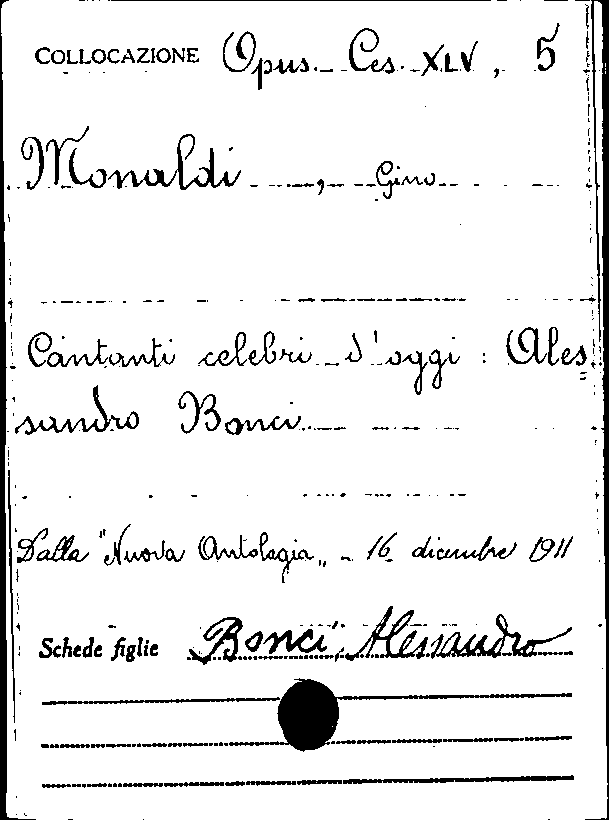 COLLOCAZIONE Opus. Ces. XLV, 5
Monaldi, Gino
Cantanti celebri d'oggi : Ales
sandro Bonci
Dalla "Nuova Antologia„ - 16 dicembre 1911
Schede figlie Bonci, Alessandro